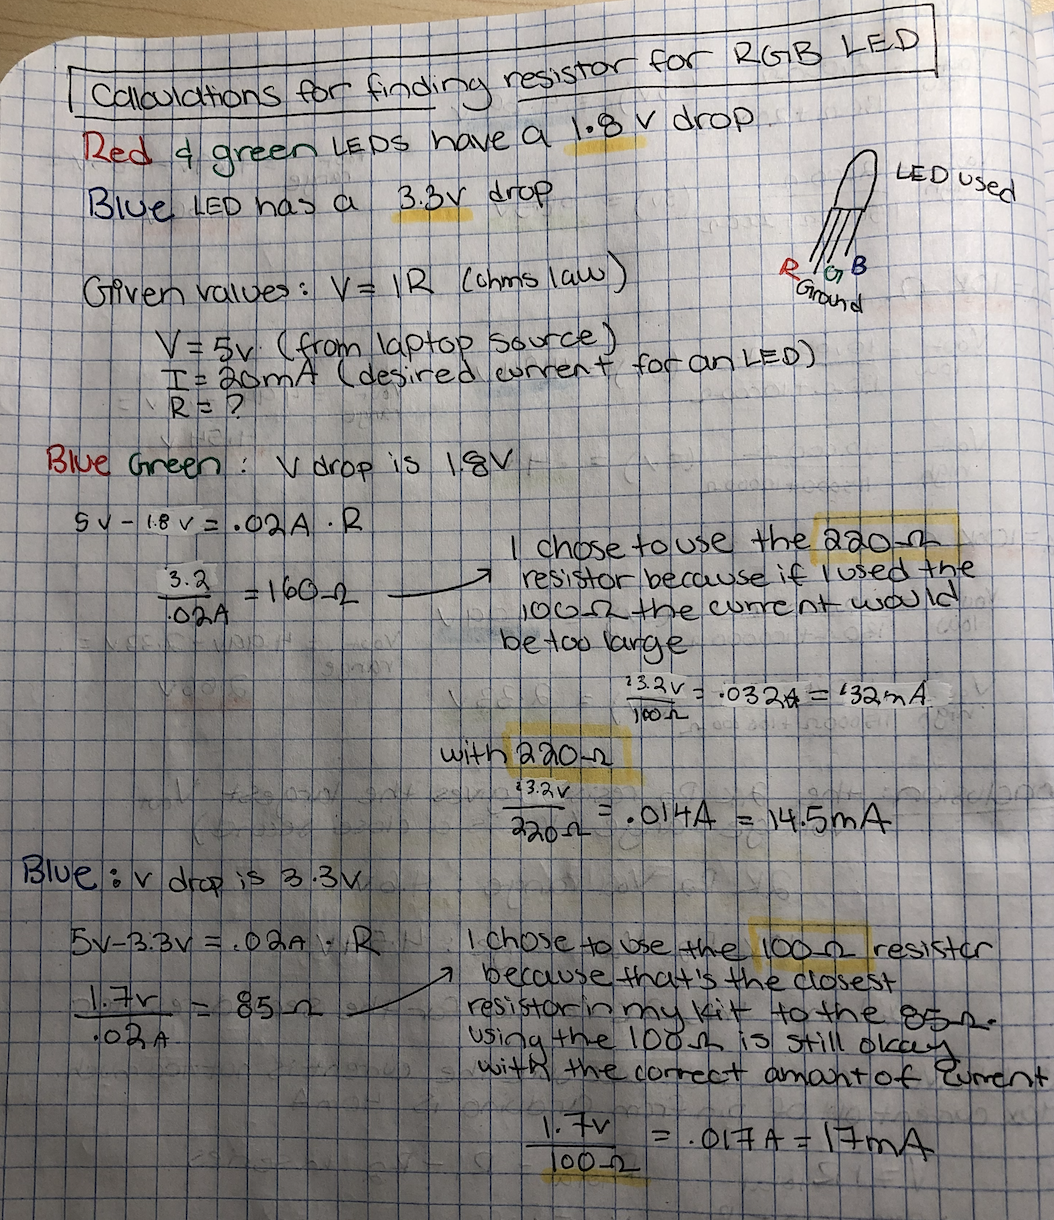 Calculations for finding resistor for RGB LED
Red & green LEDs have a 1.8 v drop
Blue LED has a 3.3v drop
LED used
R G B
Ground
Given values: V = IR (ohms law)
V = 5v (from laptop source)
I = 20mA (desired current for an LED)
R = ?
Blue Green : V drop is 1.8V
5v - 1.8v = .02A · R
3.2
.02A
= 160Ω
I chose to use the 220Ω
resistor because if I used the
100Ω the current would
be too large
3.2v
100Ω
= .032A = 32mA
with 220Ω
3.2v
220Ω
= .014A = 14.5mA
Blue : v drop is 3.3v
5v-3.3v = .02A · R
1.7v
.02A
= 85Ω
I chose to use the 100Ω resistor
because that's the closest
resistor in my kit to the 85Ω.
using the 100Ω is still okay
with the correct amount of current
1.7v
100Ω
= .017A = 17mA